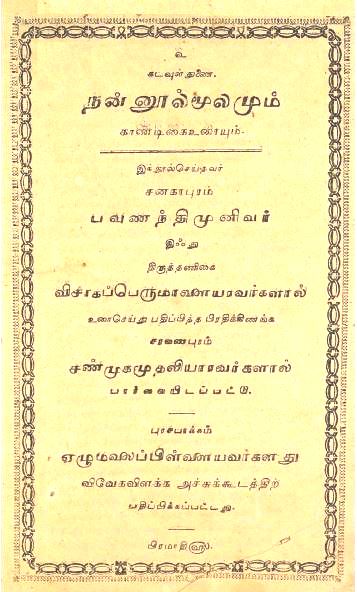 உ
கடவுள் துணை.
நன்னூல்மூலமும்
காண்டிகைஉரையும்.
இந்நூல்செய்தவர்
சனகாபுரம்
பவணந்திமுனிவர்
இஃது
திருத்தணிகை
விசாகப்பெருமாளையரவர்களால்
உரைசெய்து பதிப்பித்த பிரதிக்கிணங்க
சரவணபுரம்
சண்முகமுதலியாரவர்களால்
பார்வையிடப்பட்டு.
புரசபாக்கம்
ஏழுமலைப்பிள்ளையவர்களது
விவேகவிளக்க அச்சுக்கூடத்திற்
பதிப்பிக்கப்பட்டது.
பிரமாதி௵